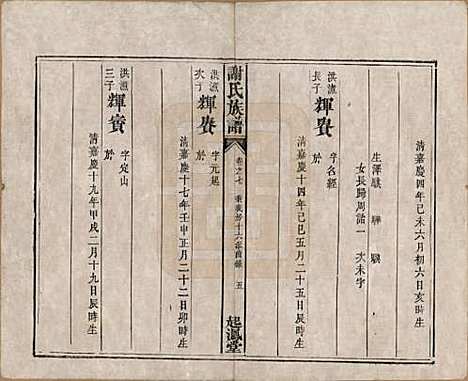 清嘉慶四年己未六月初六日亥時生
生澤
女長歸周詰一 次未字
洪滋長子 輝
字名經
於
清嘉慶十四年己巳五月二十五日辰時生
謝氏族譜
卷之七
五
起鳳堂
洪滋次子 輝
字元起
於
清嘉慶十七年壬申正月二十二日卯時生
洪滋三子 輝賓
字定山
於
清嘉慶十九年甲戌二月十九日辰時生